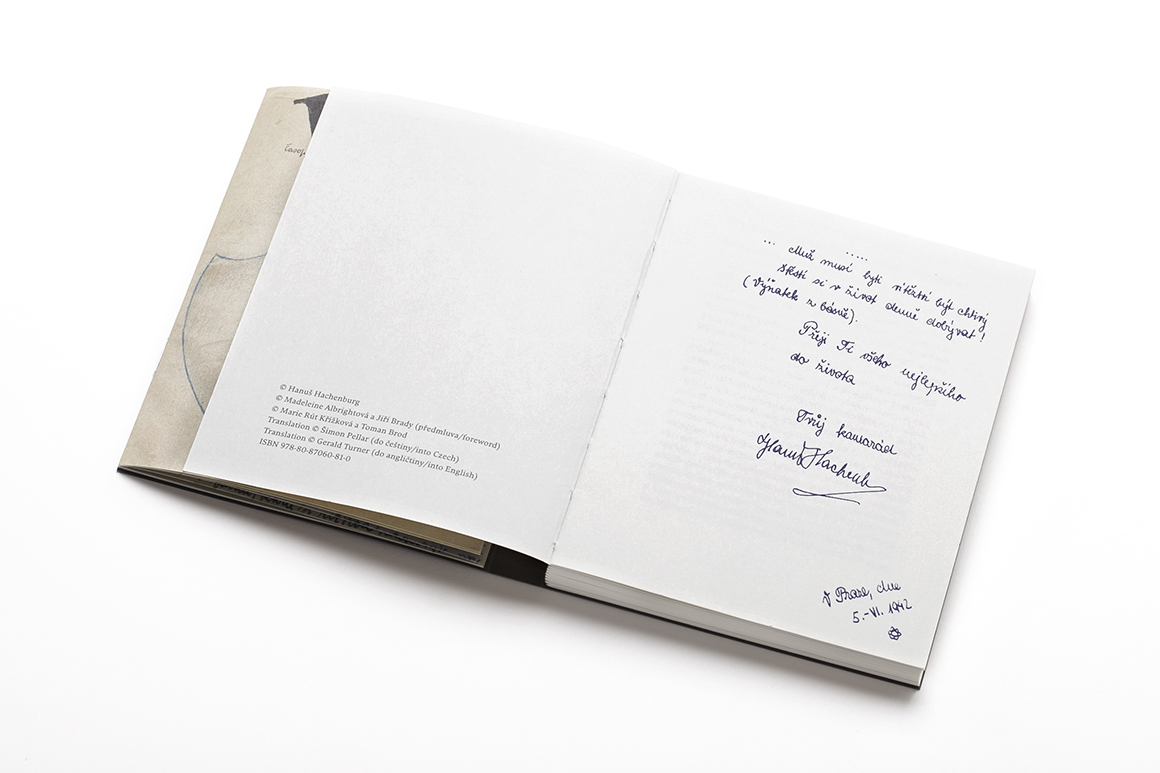 časop
© Hanuš Hachenburg
© Madeleine Albrightová a Jiří Brady (předmluva/foreword)
© Marie Rút Křížková a Toman Brod
Translation © Šimon Pellar (do češtiny/into Czech)
Translation © Gerald Turner (do angličtiny/into English)
ISBN 978-80-87060-81-0
.....
... Muž musí býti vítězství být chtivý
štěstí si v život denně dobývat!
(Výňatek z básně).
Přeji Ti všeho nejlepšího
do života
Tvůj kamarád
Hanuš Hachenb
V Praze, dne
5.-VI. 1942